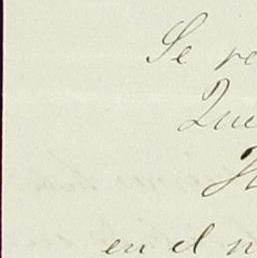 Se re
Que
H
en el n